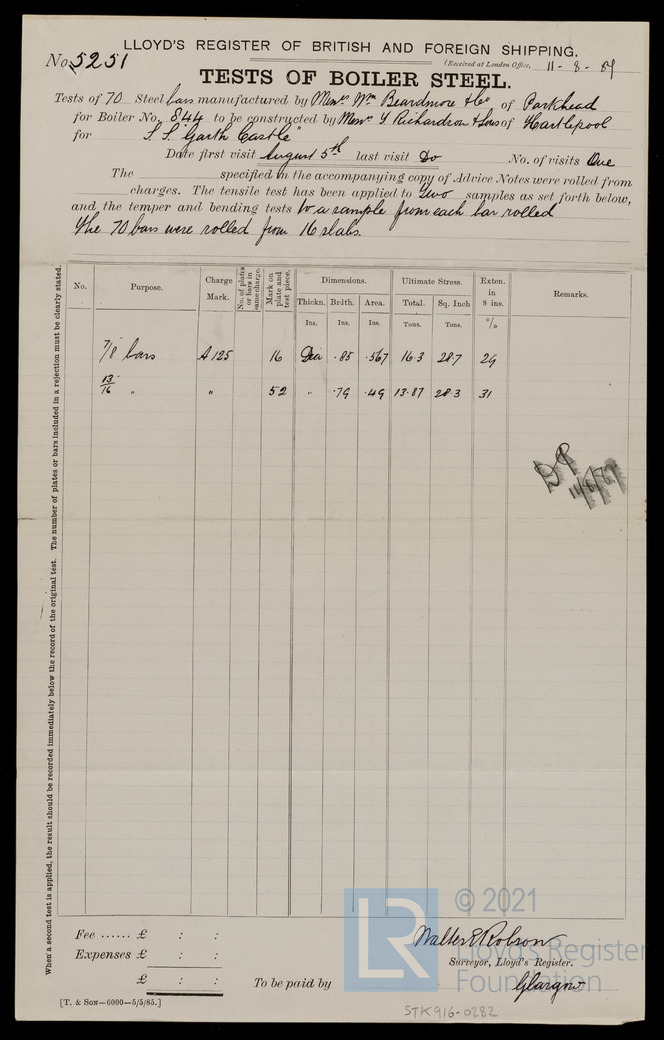 LLOYD'S REGISTER OF BRITISH AND FOREIGN SHIPPING.
No. 5251
(Received at London Office, 11-8-87
TESTS OF BOILER STEEL.
Tests of 70 Steel bars manufactured by Messrs Wm Beardmore & Co of Parkhead
for Boiler No. 844 to be constructed by Messrs T Richardson & Sons of Hartlepool
for S.S. "Garth Castle"
Date first visit August 5th last visit Do No. of visits One
The specified in the accompanying copy of Advice Notes were rolled from
charges. The tensile test has been applied to two samples as set forth below,
and the temper and bending tests to a sample from each bar rolled
The 70 bars were rolled from 16 slabs.
When a second test is applied, the result should be recorded immediately below the record of the original test. The number of plates or bars included in a rejection must be clearly stated.
No. Purpose. Charge Mark. No. of plates or bars in same charge. Mark on plate and test piece. Dimensions. Ultimate Stress. Exten. in 8 ins. Remarks.
Thickn. Brdth. Area. Total. Sq. Inch
Ins. Ins. Ins. Tons. Tons. %
7/8 bars A 125 16 Dia .85 .567 16.3 28.7 29
13/16 " " 52 " .79 .49 13.87 28.3 31
11/8/87
Fee ...... £ : :
Expenses £ : :
£ : :
To be paid by
Walter E Robson
Surveyor, Lloyd's Register.
Glasgow
[T. & SON—6000—5/5/85.]
STK916-0282
LR
© 2021
Lloyd's Register
Foundation